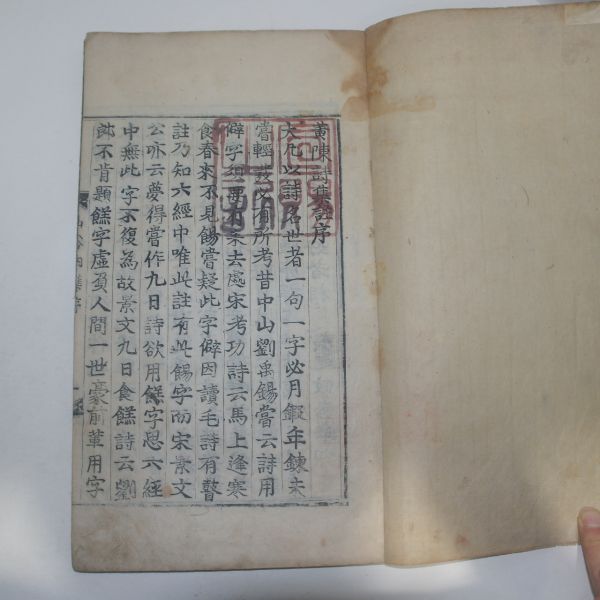 黃陳詩集註序
大凡以詩名世者一句一字必月鍛年鍊未
嘗輕發必有所考昔中山劉禹錫嘗云詩用
僻字須要有來去處宋考功詩云馬上逢寒
食春來不見餳嘗疑此字僻因讀毛詩有瞽
註乃知六經中唯此註有此餳字而宋景文
公亦云夢得嘗作九日詩欲用餻字思六經
中無此字不復為故景文九日食餻詩云劉
郎不肯題餻字虛負人間一世豪前輩用字